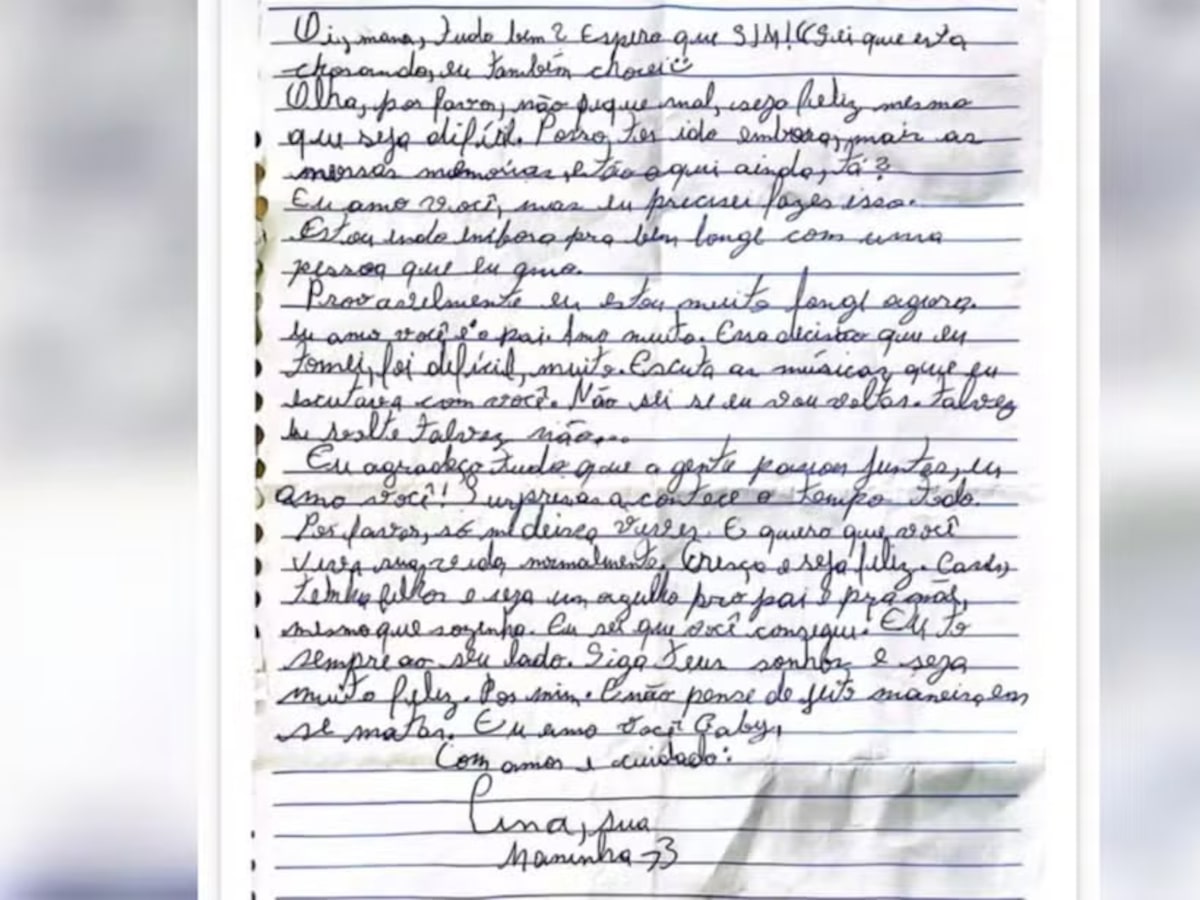 Oi, mana, tudo bem? Espero que SIM! (Sei que esta
chorando, eu também chorei
Olha, por favor, não fique mal, seja feliz mesmo
que seja difícil. Posso ter ido embora, mais as
nossas memórias, estão aqui ainda, tá?
Eu amo você, mas eu precisei fazer isso.
Estou indo embora pra bem longe com uma
pessoa que eu amo.
Provavelmente eu estou muito longe agora.
Eu amo você e o pai. Amo muito. Essa decisão que eu
tomei, foi difícil, muito. Escuta as músicas que eu
escutava com você. Não sei se eu vou voltar. Talvez
eu volte talvez não...
Eu agradeço tudo que a gente passou juntas, eu
amo você! Surpresas acontece o tempo todo.
Por favor, só me deixa viver. E quero que você
viva sua vida normalmente. Cresça e seja feliz. Case,
tenha filhos e seja um orgulho pro pai e pra mãe,
mesmo que sozinha. Eu sei que você consegui. Eu to
sempre ao seu lado. Siga teus sonhos e seja
muito feliz. Por mim. E não pense de jeito maneira, em
se matar. Eu amo você Gaby,
Com amor e cuidado:
sua
Maninha